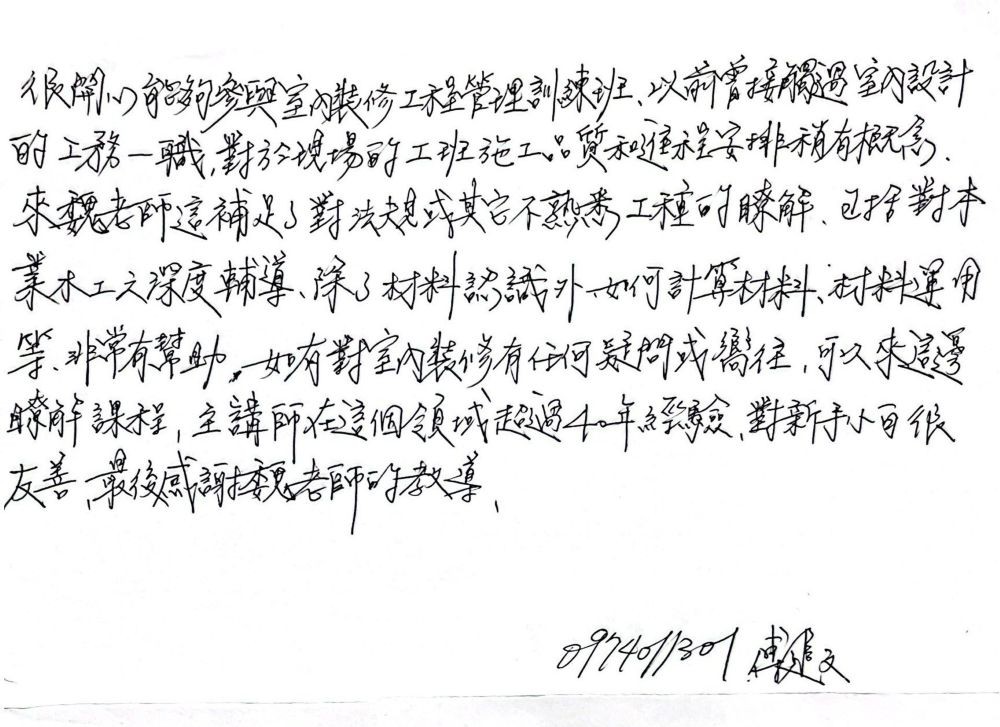 很開心能夠參與室內裝修工程管理訓練班、以前曾接觸過室內設計
的工務一職,對於現場的工班施工品質和進程安排稍有概念、
來魏老師這補足了對法規或其它不熟悉工種的瞭解、包括對本
業木工之深度輔導、除了材料認識外、如何計算材料、材料運用
等、非常有幫助。如有對室內裝修有任何疑問或嚮往,可以來這邊
瞭解課程,主講師在這個領域超過40年經驗、對新手小白很
友善、最後感謝魏老師的教導、
0974011301 傅 文